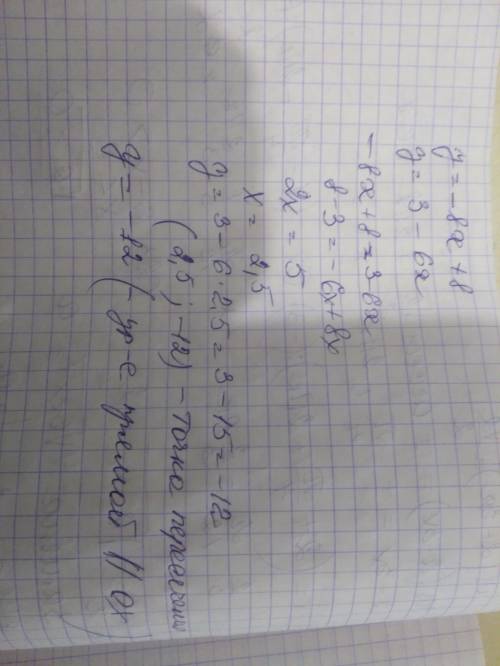 y = -8x + 8
y = 3 - 6x
-8x + 8 = 3 - 6x
8 - 3 = -6x + 8x
2x = 5
x = 2,5
y = 3 - 6 · 2,5 = 3 - 15 = -12
(2,5 ; -12) - точка пересечения
y = -12 ( - ур-е прямой || Ox)